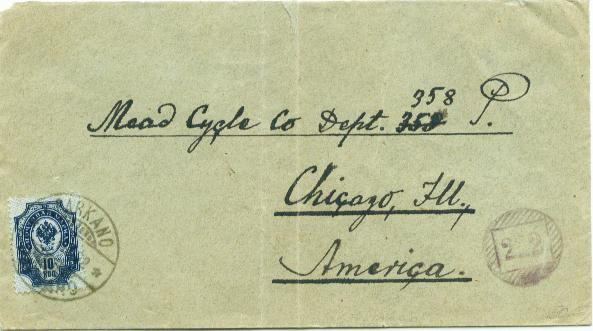 358
Mead Cycle Co Dept. 358 P.
Chicago, Ill.,
America.
ARKANO
10
КОП
2 2